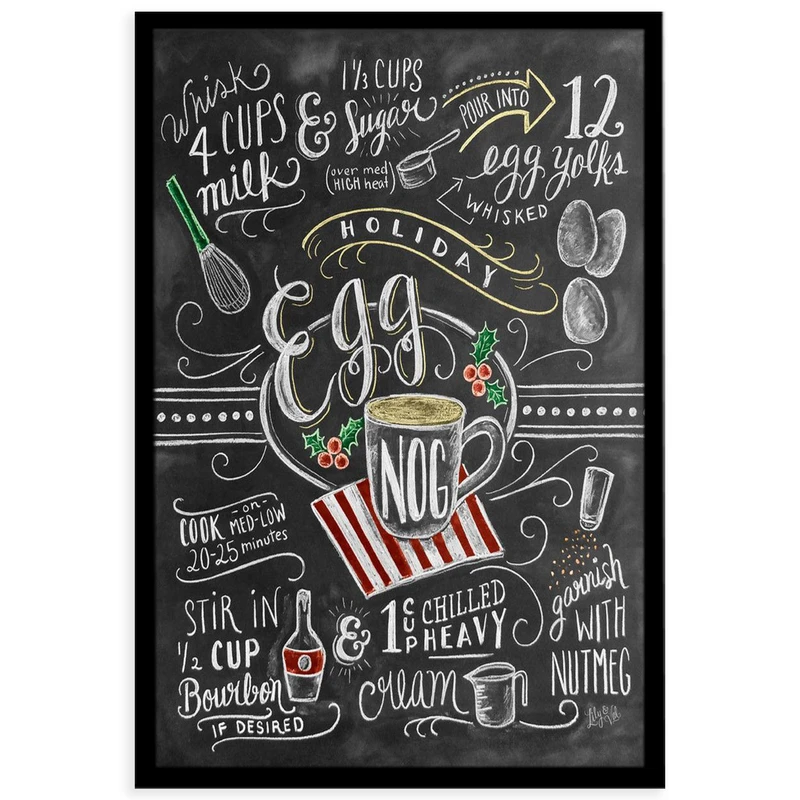 Whisk
4 CUPS
milk
&
1 1/3 CUPS
Sugar
(over med
HIGH heat)
POUR INTO
12
egg yolks
WHISKED
HOLIDAY
Egg
NOG
COOK -on- MED-LOW
20-25 minutes
STIR IN
1/2 CUP
Bourbon
IF DESIRED
&
1 CUP CHILLED
HEAVY
cream
garnish
WITH
NUTMEG
Lily & Val